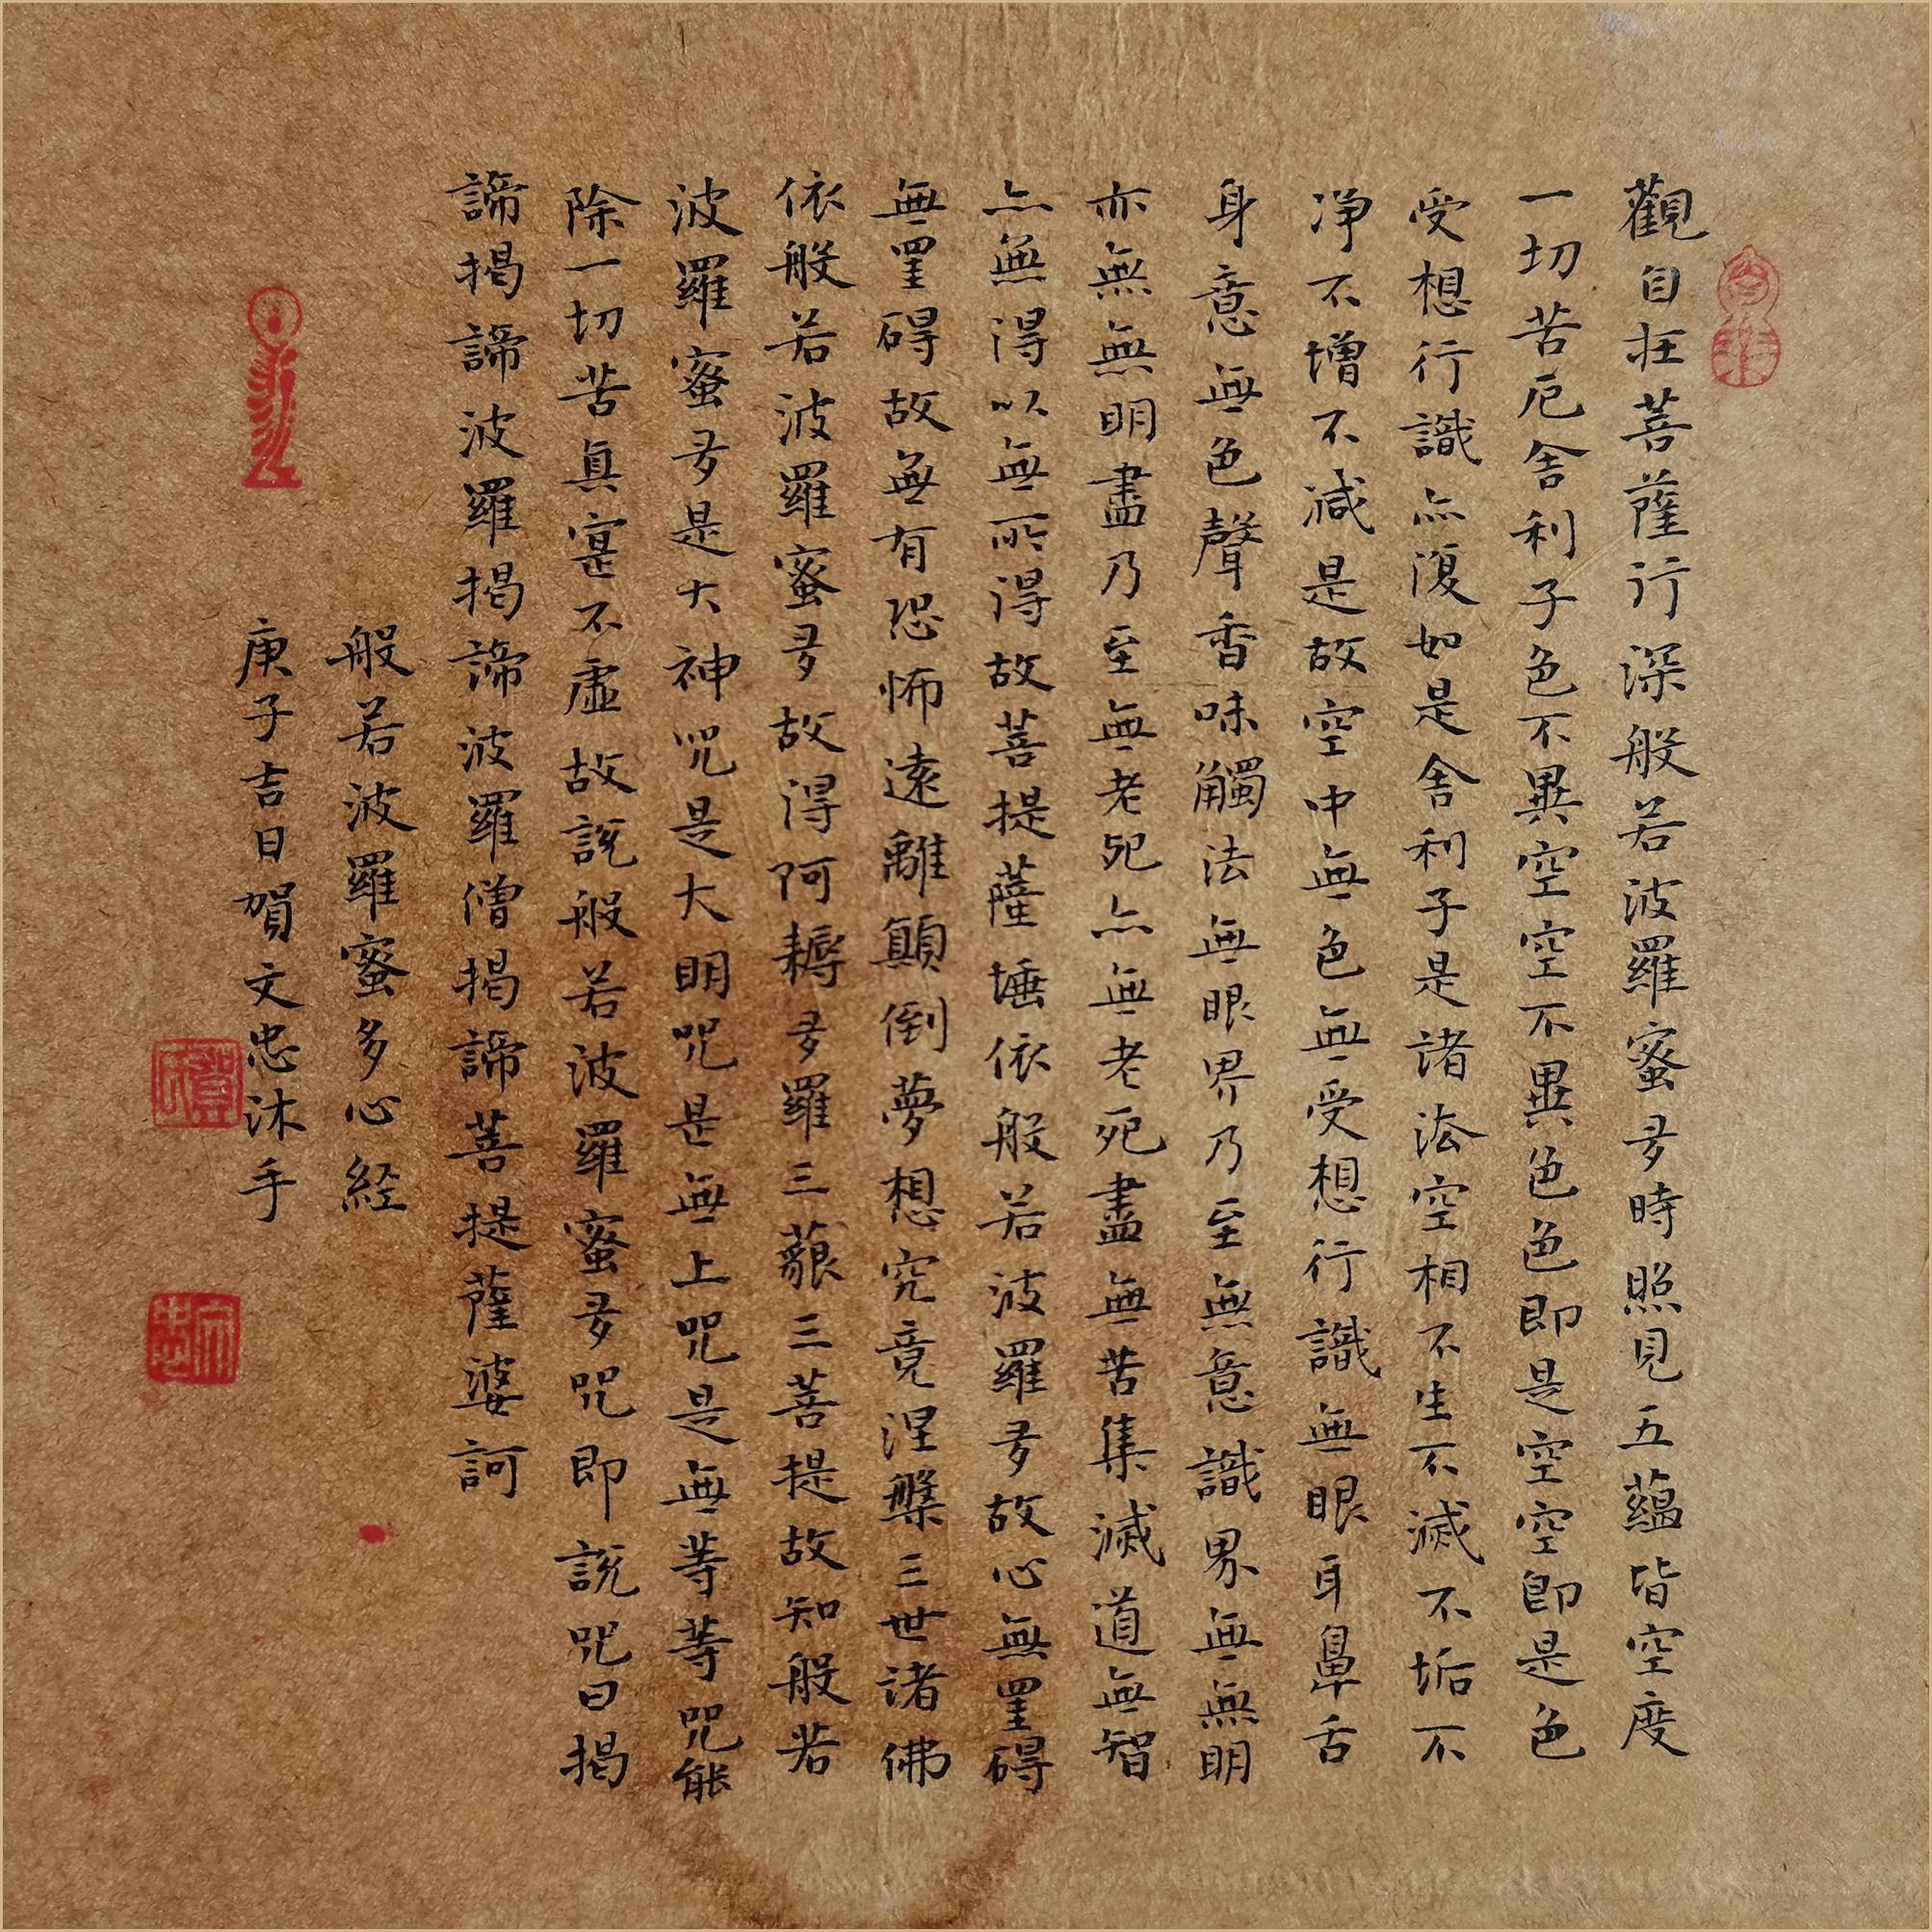 觀自在菩薩行深般若波羅蜜多時照見五蘊皆空度
一切苦厄舍利子色不異空空不異色色即是空空即是色
受想行識亦復如是舍利子是諸法空相不生不滅不垢不
净不增不減是故空中無色無受想行識無眼耳鼻舌
身意無色聲香味觸法無眼界乃至無意識界無無明
亦無無明盡乃至無老死亦無老死盡無苦集滅道無智
亦無得以無所得故菩提薩埵依般若波羅多故心無罣碍
無罣碍故無有恐怖遠離顛倒夢想究竟涅槃三世諸佛
依般若波羅蜜多故得阿耨多羅三藐三菩提故知般若
波羅蜜多是大神咒是大明咒是無上咒是無等等咒能
除一切苦真寔不虛故說般若波羅蜜多咒即說咒曰揭
諦揭諦波羅揭諦波羅僧揭諦菩提薩婆訶
般若波羅蜜多心経
庚子吉日賀文忠沐手
文忠